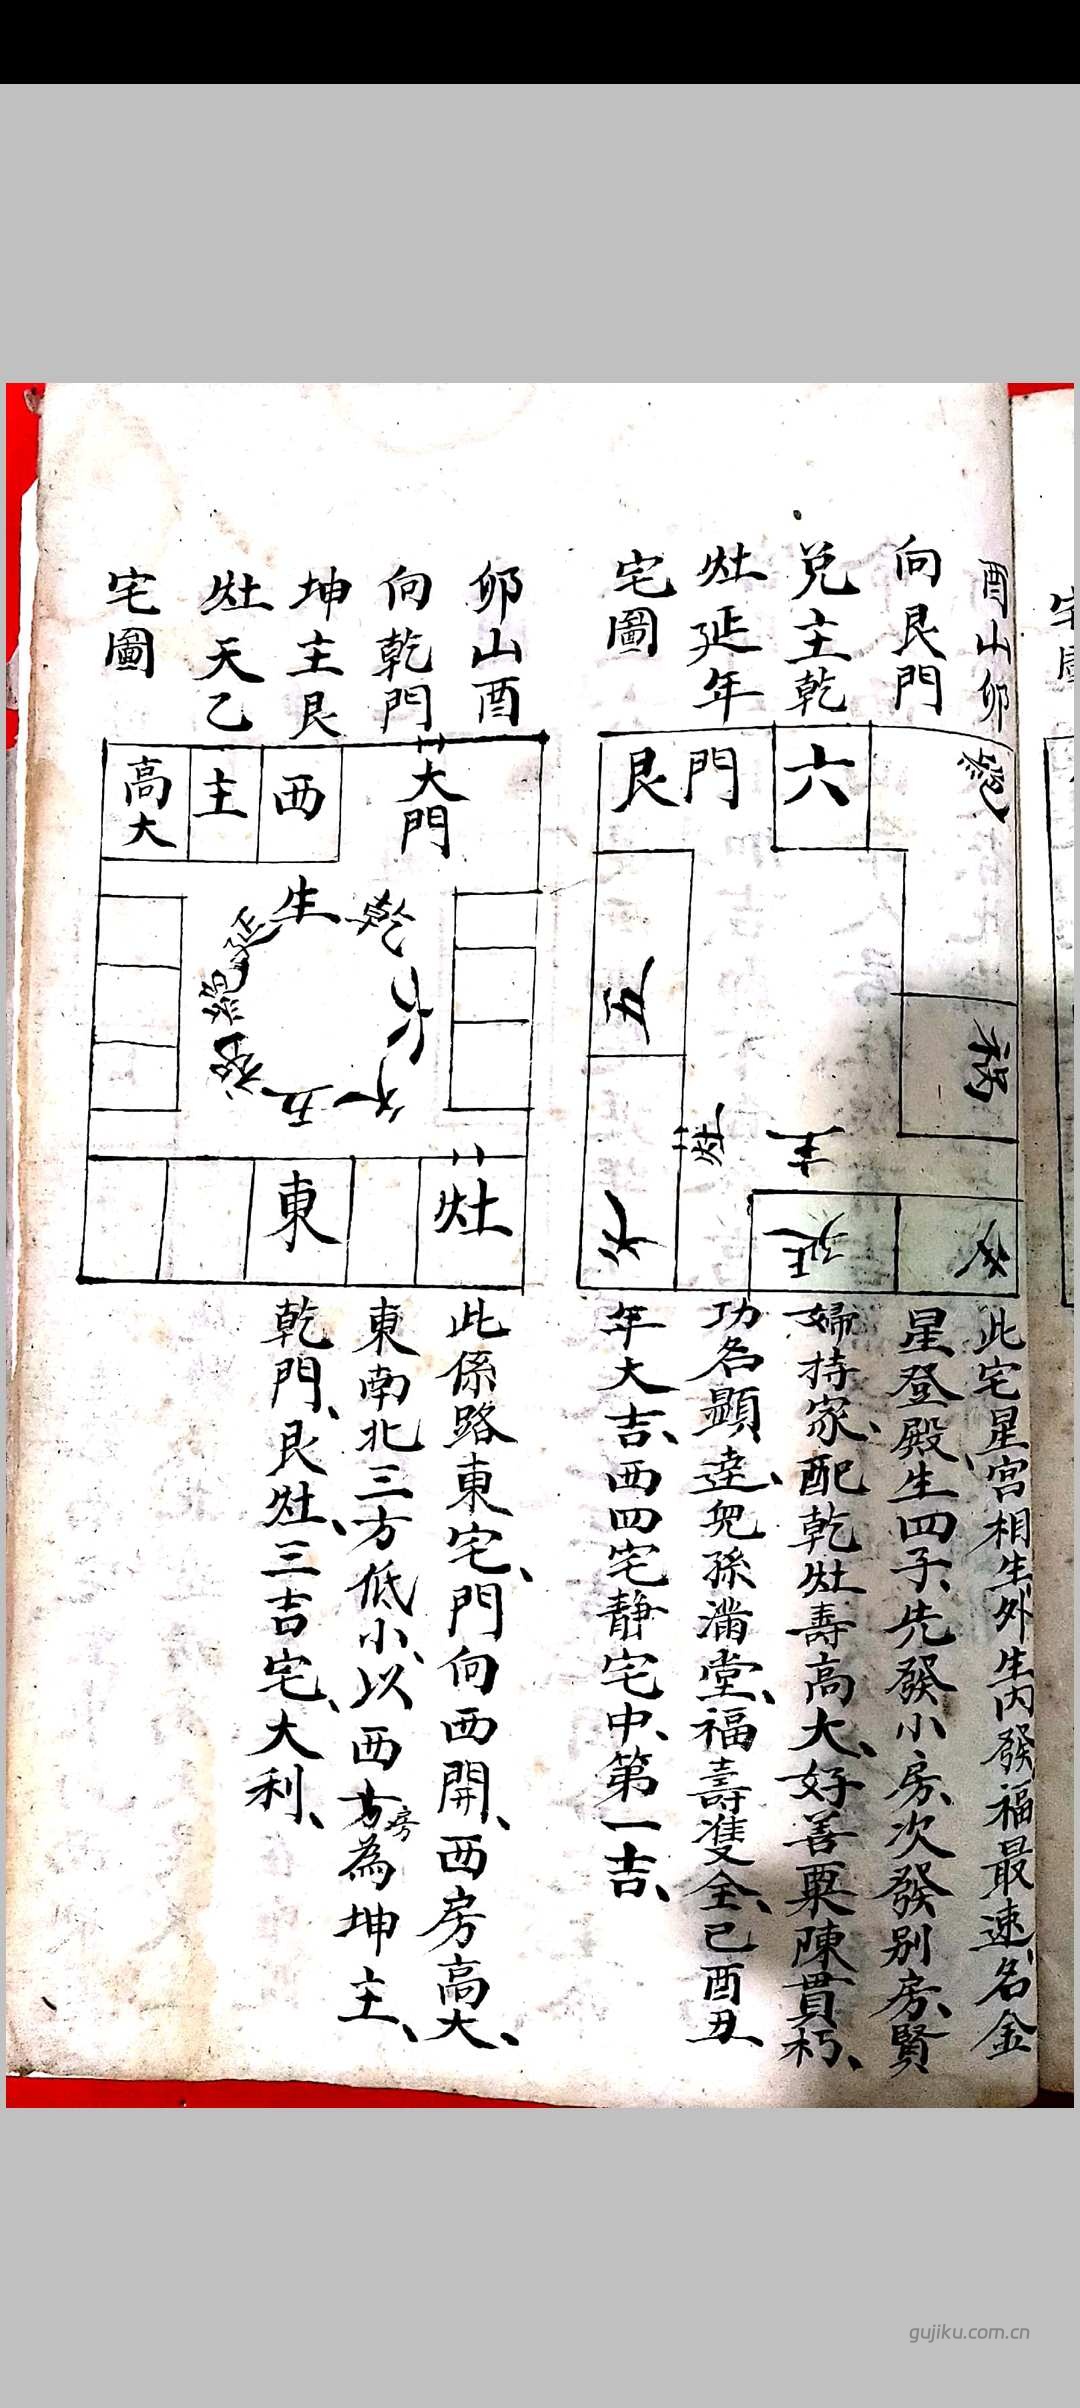 酉山卯
向艮門
兑主乾
灶延年
宅圖
絶
六
門
艮
禍
五
灶
主
延
六
此宅星宫相生、外生内發福最速、名金
星登殿、生四子、先發小房、次發别房、賢
婦持家、配乾灶壽高大、好善粟陳貫朽、
功名顯達、兒孫滿堂、福壽雙全、巳酉丑
年大吉、西四宅靜宅中、第一吉、
卯山酉
向乾門
坤主艮
灶天乙
宅圖
大門
西
主
高大
生
延
絶
禍
五
天
六
乾
灶
東
此係路東宅、門向西開、西房高大、
東南北三方低小、以西方為坤主、
房
乾門、艮灶、三吉宅、大利、
宅圖
gujiku.com.cn